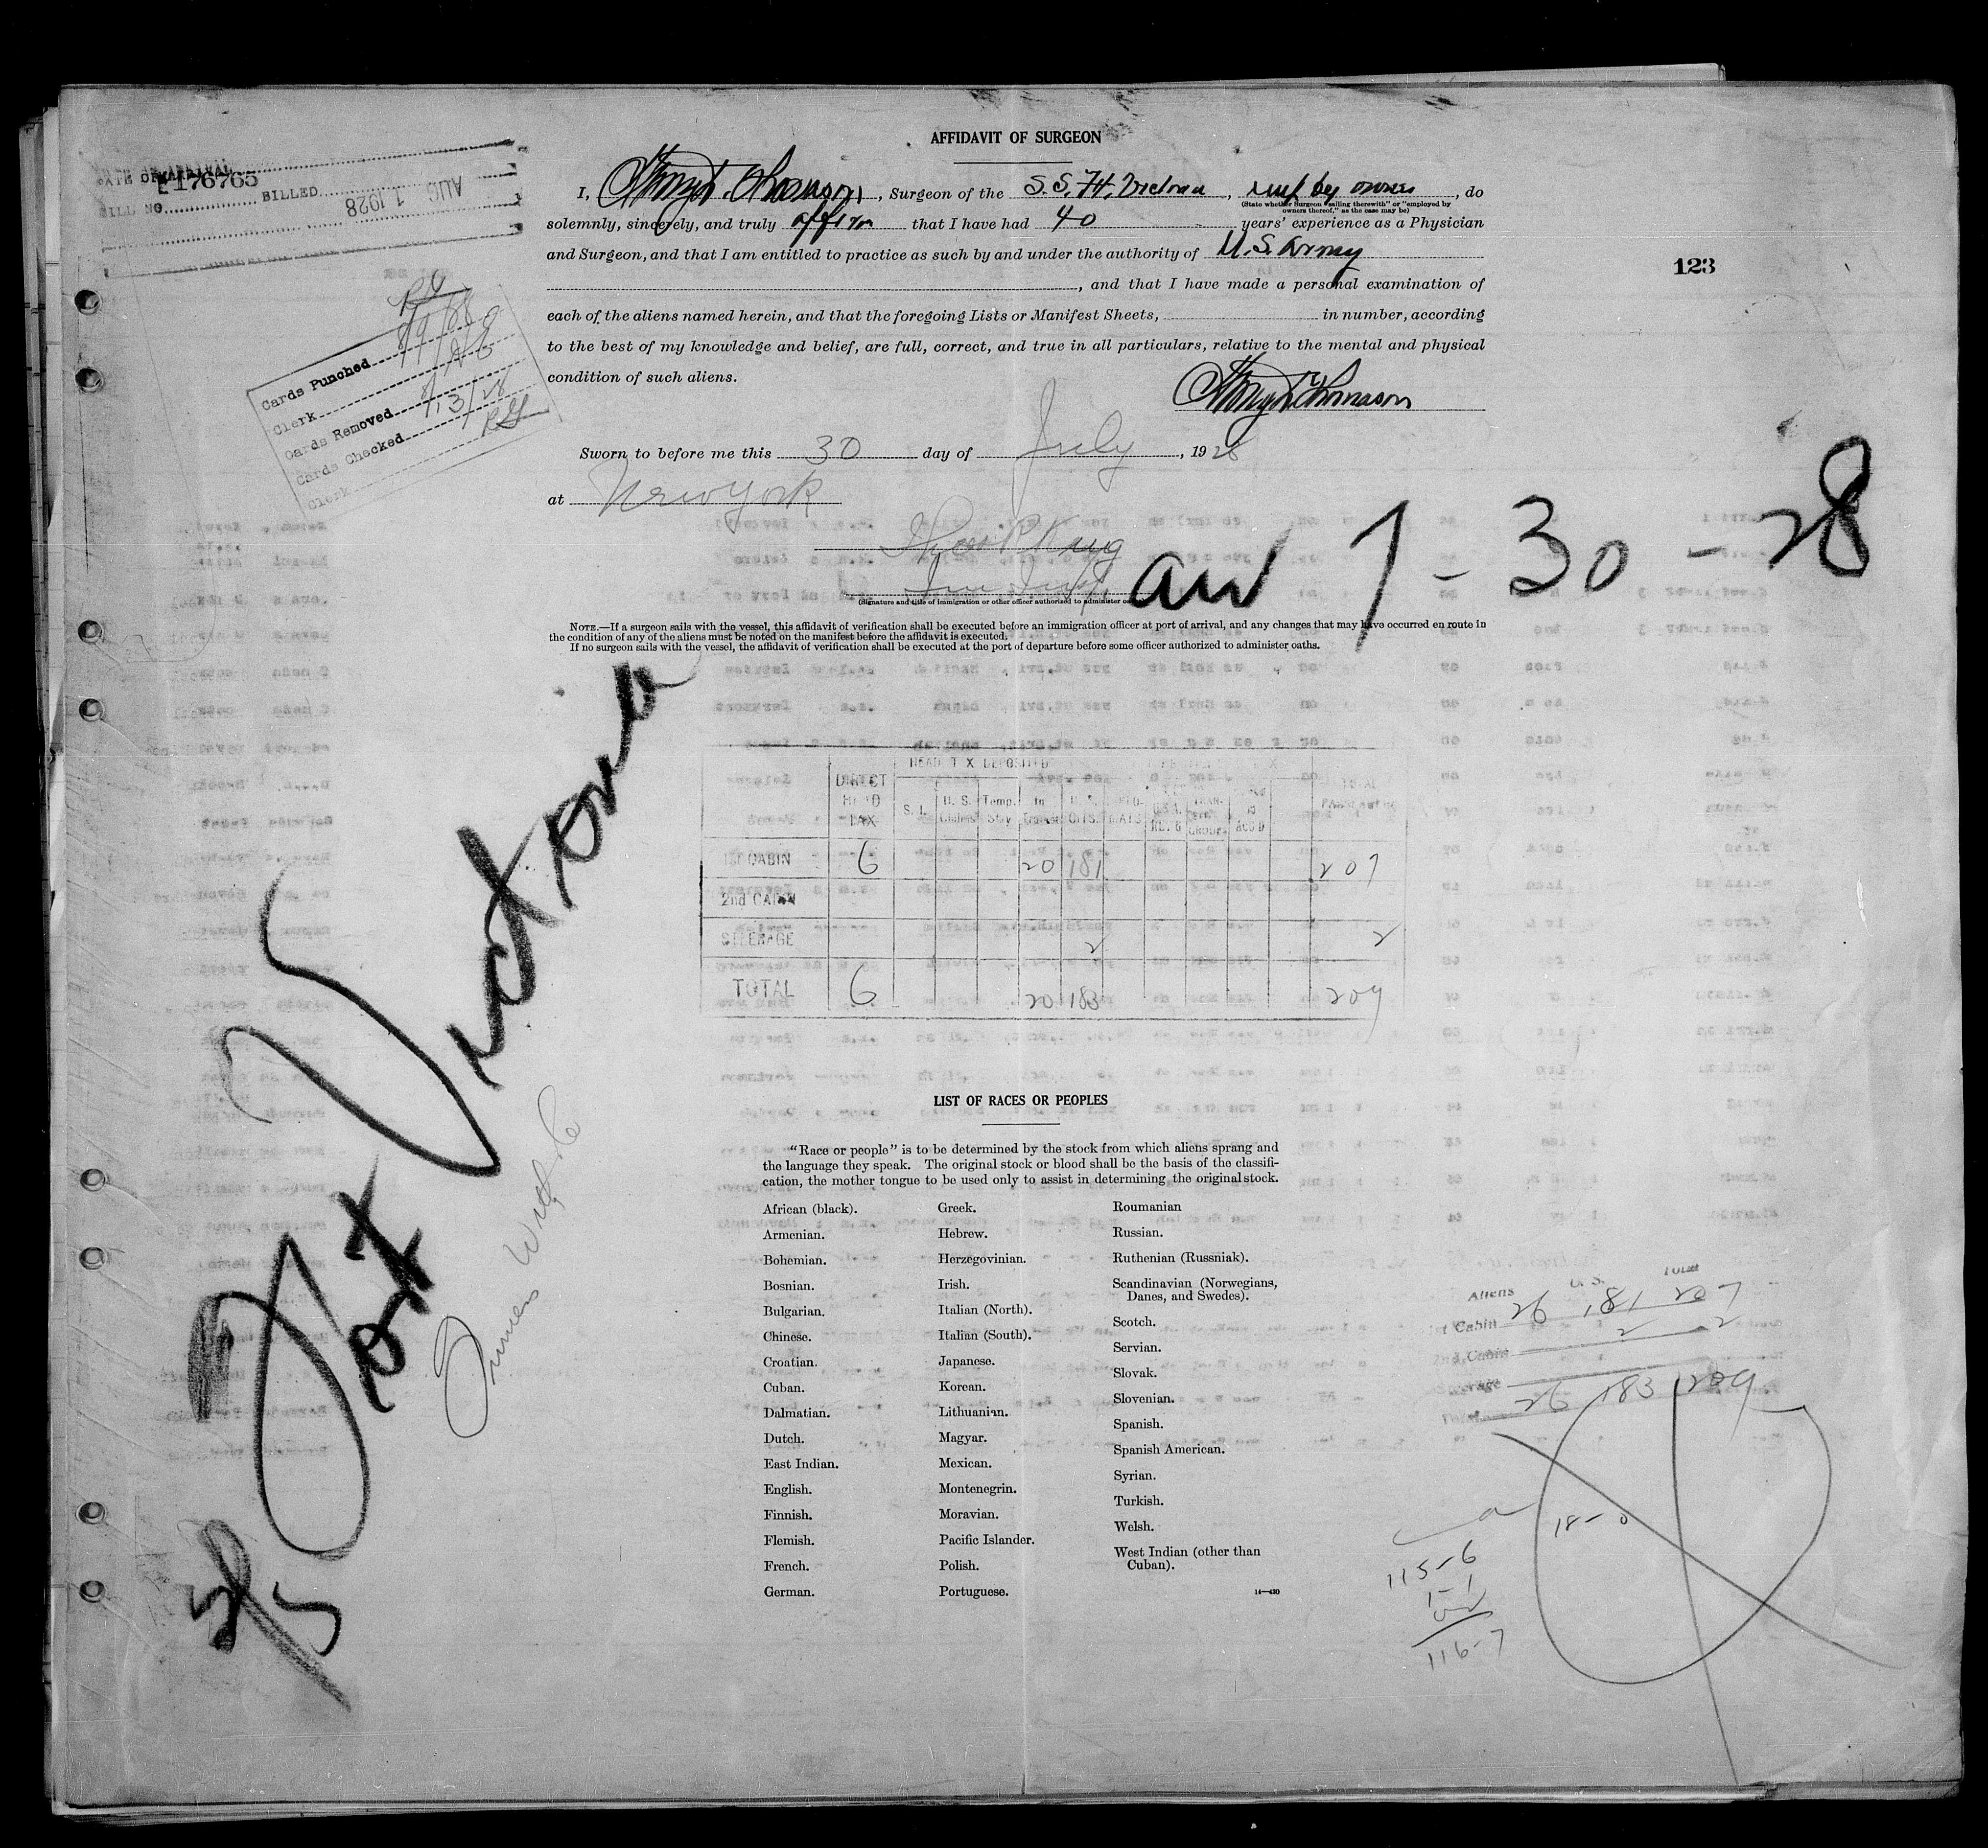 AFFIDAVIT OF SURGEON
I, Henry Thomason, Surgeon of the S.S. Ft. Victoria, emp by owners, do
(State whether Surgeon "sailing therewith" or "employed by
owners thereof," as the case may be)
solemnly, sincerely, and truly affirm that I have had 40 years' experience as a Physician
and Surgeon, and that I am entitled to practice as such by and under the authority of U.S. Army
, and that I have made a personal examination of
each of the aliens named herein, and that the foregoing Lists or Manifest Sheets, in number, according
to the best of my knowledge and belief, are full, correct, and true in all particulars, relative to the mental and physical
condition of such aliens.
Sworn to before me this 30 day of July, 1928
at New York
(Signature and title of immigration or other officer authorized to administer
arr 7-30-28
NOTE.—If a surgeon sails with the vessel, this affidavit of verification shall be executed before an immigration officer at port of arrival, and any changes that may have occurred en route in
the condition of any of the aliens must be noted on the manifest before the affidavit is executed.
If no surgeon sails with the vessel, the affidavit of verification shall be executed at the port of departure before some officer authorized to administer oaths.
DATE OF ARRIVAL
176765
BILL NO. BILLED
AUG 1 1928
Cards Punched
Clerk
Cards Removed
Cards Checked 8/13/28
Clerk
123
Fort Victoria
Furness Withy Co
HEAD TAX DEPOSITED
DIRECT HEAD TAX S. I. U. S. Temp. Stay In Transit U. S. CITS.
1st CABIN 6 20 181 207
2nd CABIN
STEERAGE 2 2
TOTAL 6 20 183 209
LIST OF RACES OR PEOPLES
"Race or people" is to be determined by the stock from which aliens sprang and
the language they speak. The original stock or blood shall be the basis of the classifi-
cation, the mother tongue to be used only to assist in determining the original stock.
African (black).
Armenian.
Bohemian.
Bosnian.
Bulgarian.
Chinese.
Croatian.
Cuban.
Dalmatian.
Dutch.
East Indian.
English.
Finnish.
Flemish.
French.
German.
Greek.
Hebrew.
Herzegovinian.
Irish.
Italian (North).
Italian (South).
Japanese.
Korean.
Lithuanian.
Magyar.
Mexican.
Montenegrin.
Moravian.
Pacific Islander.
Polish.
Portuguese.
Roumanian
Russian.
Ruthenian (Russniak).
Scandinavian (Norwegians,
Danes, and Swedes).
Scotch.
Servian.
Slovak.
Slovenian.
Spanish.
Spanish American.
Syrian.
Turkish.
Welsh.
West Indian (other than
Cuban).
14—430
Aliens U. S. Total
1st Cabin 26 181 207
2nd Cabin 2 2
Steerage
Total 26 183 209
18-0
115-6
1-1
116-7